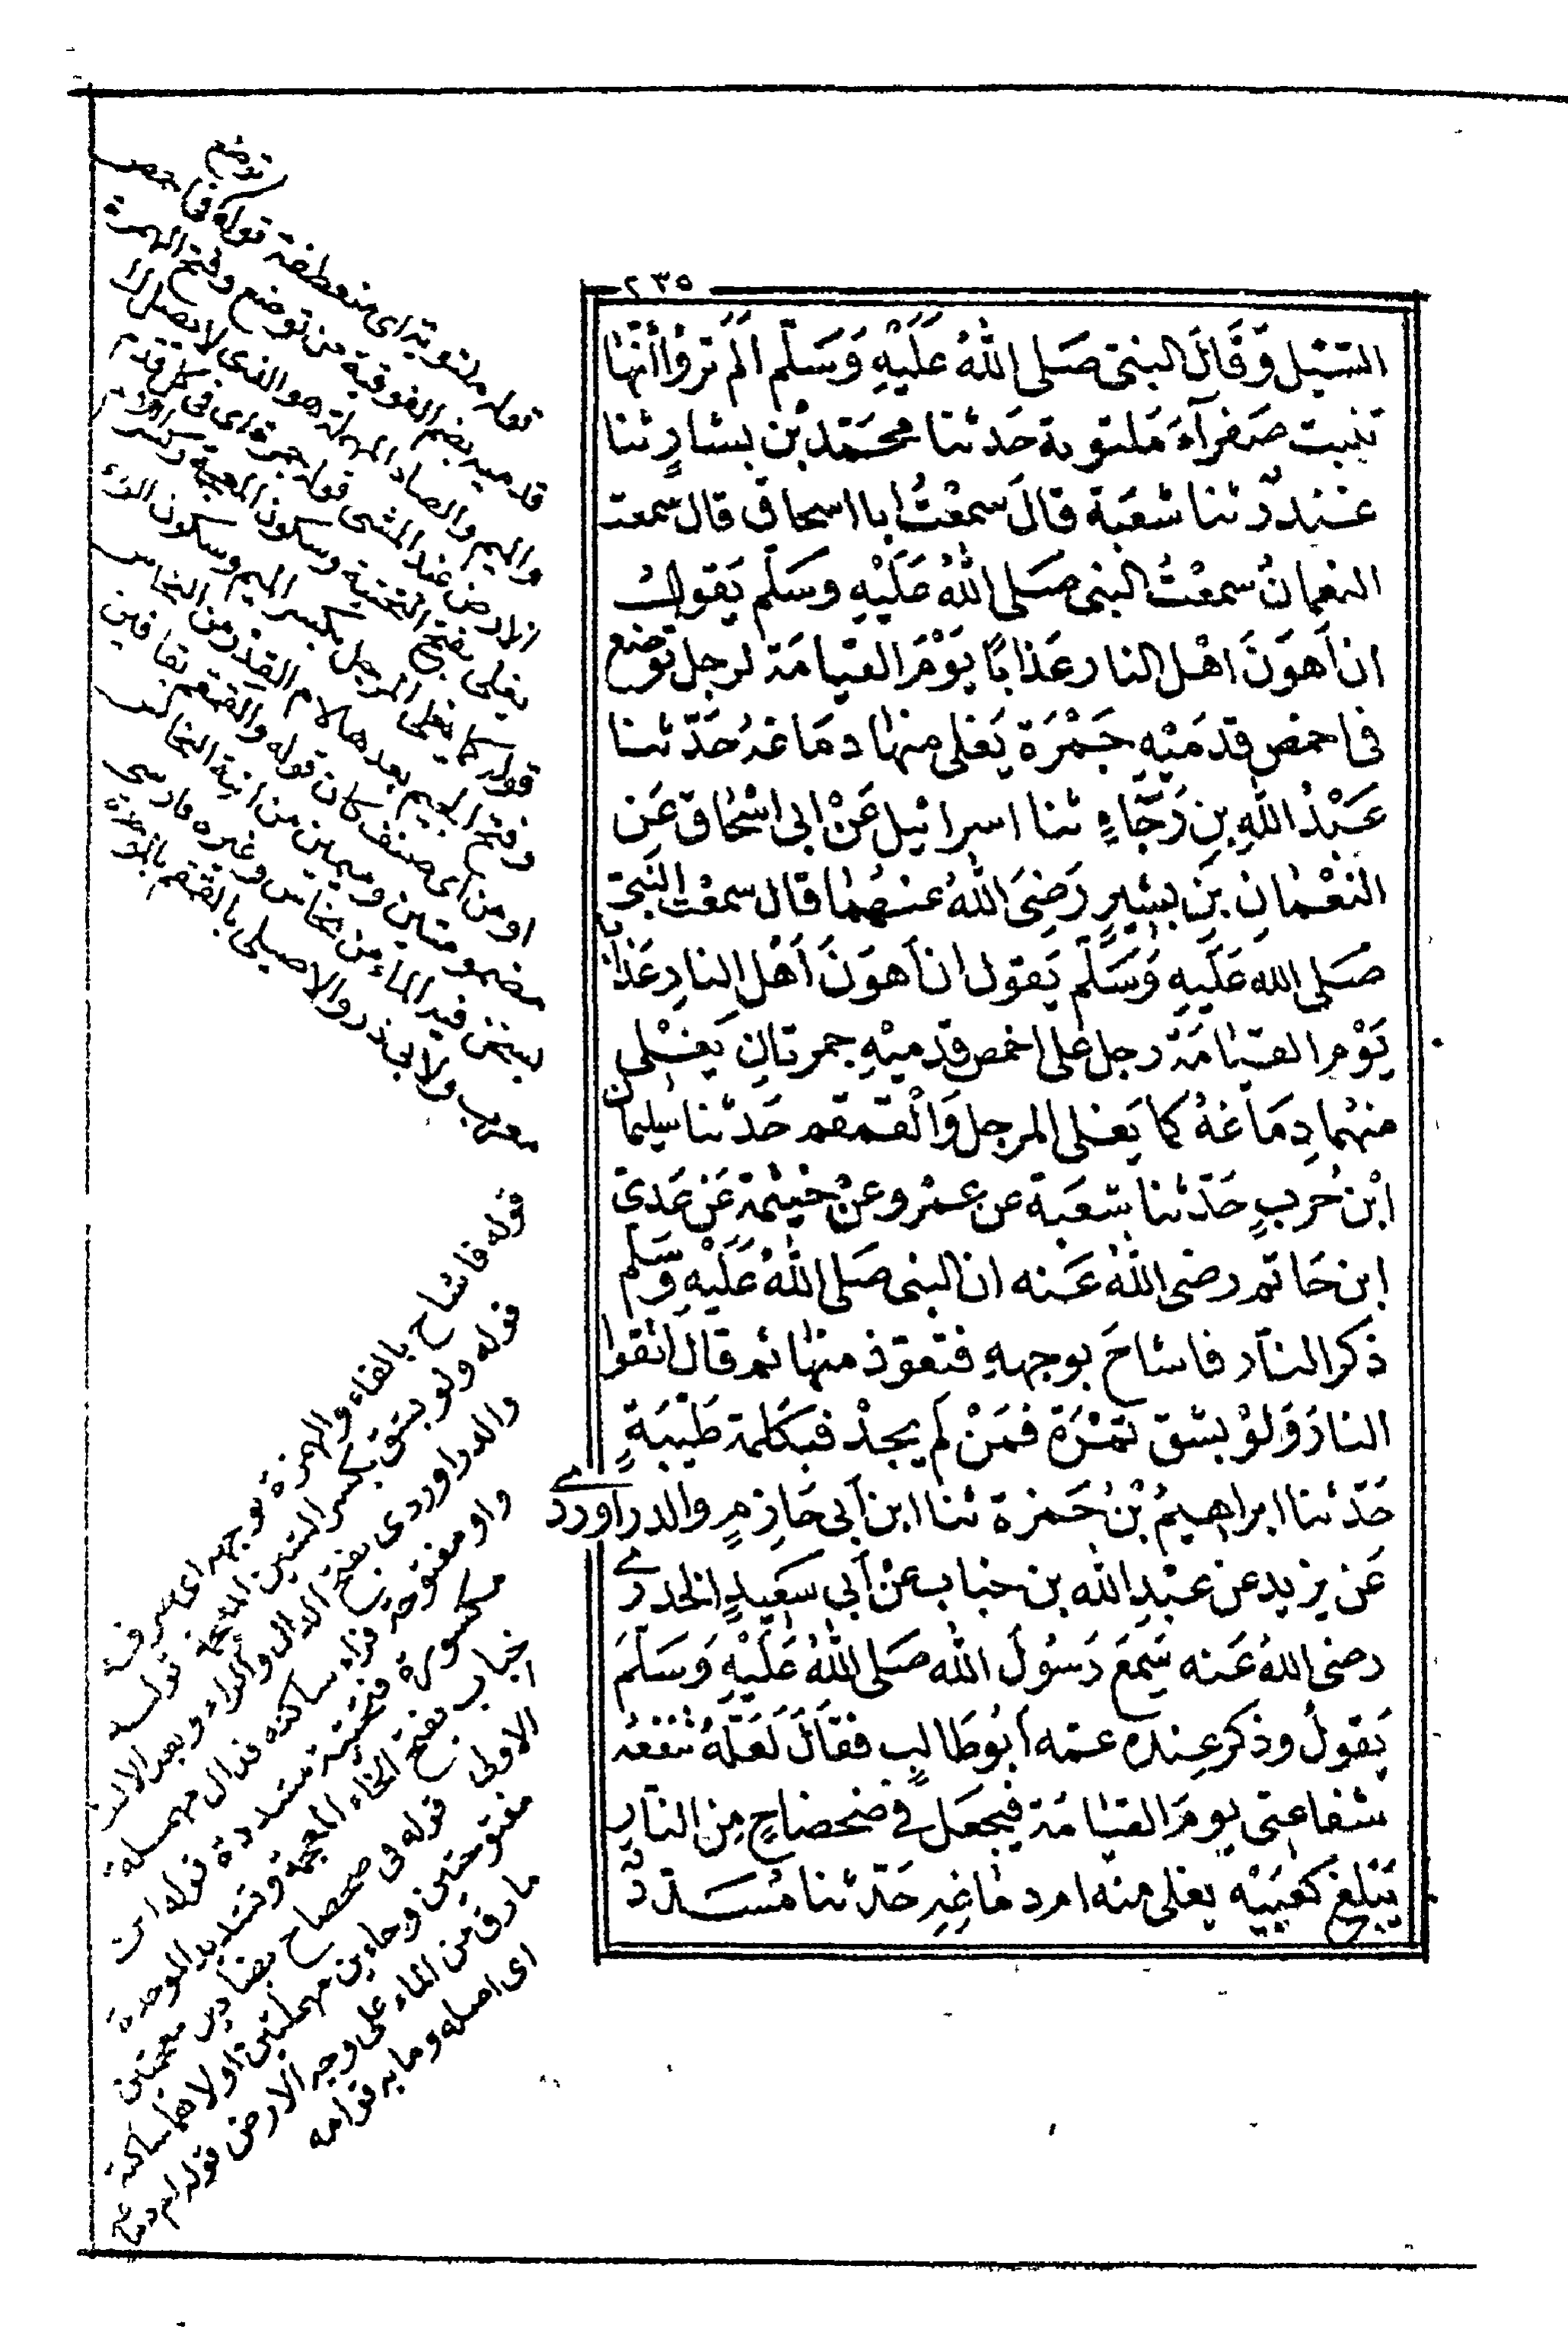 ٢٣٥
السَّيْل وَقَالَ النبي صَلى اللهُ عَلَيْهِ وَسَلّم ألَمْ تَرَوْا أنّهَا
تنبت صَفرآءَ مَلتوية حَدثنا محمّد بْن بشارٍ ثنا
غندر ثنا شعْبَة قالَ سمعْتُ ابا اسحاق قال سمعت
النعمانُ سمعْتُ النبي صَلى اللهُ عَلَيْهِ وسَلّم يَقولُ
ان أهوَنَ اهْل النار عَذابًا يَوْمَ القيامَة لرجل توضع
في اخمص قدمَيْهِ جَمْرَة يَغلي منهَا دمَاغهُ حَدّثنا
عَبْدُ اللهِ بن رَجَاءٍ ثنا اسرائيل عَنْ ابي اسْحَاق عَن
النعْمانِ بن بشيرٍ رَضِيَ اللهُ عنهُما قال سمعْت النَبيّ
صَلى الله عَلَيهِ وَسَلّم يَقول ان أهوَنَ أهْل النارِ عَذابًا
يَوْم القيَامَة رجل على اخمص قدميْهِ جمرتانِ يَغْلي
منهُما دِمَاغهُ كما يَغلي المرجل وَالْقمقم حَدثنا سُليمان
ابْن حُربٍ حَدّثنا شعَبة عن عمْرو عنْ خيثمة عَن عَدي
ابن حَاتم رضي اللهُ عَنه ان النبي صَلى اللهُ عَلَيْهِ وَسَلم
ذكر النار فاشاحَ بوجههِ فتعوّذ منهَا ثم قال اتقوا
النارَ وَلوْ بشق تمْرَة فمَنْ لَم يجدْ فبكلمة طَيّبَةٍ
حَدّثنا ابراهيمُ بْنُ حَمزة ثنا ابن أبي حَازِمٍ والدراوردي
عَن يزيد عن عبْدِ الله بن خباب عنْ أبي سَعِيدٍ الخدري
رضي اللهُ عَنه سَمِعَ رَسُولَ الله صَلى اللهُ عَلَيْهِ وَسَلّمَ
يَقولُ وذكر عِندَه عمّه أبُوطَالِبٍ فقَالَ لَعَلّهُ تنفعُه
شفاعتي يومَ القيَامَة فيجعَل في ضحضاحٍ مِن النارِ
يَبْلغ كعْبَيْه يغلي منه ام دمَاغِهِ حَدّثنا مُسَدّد
توضع
قوله ملتوية اى منعطفة قوله في اخمص
قدميه بضم الفوقية من توضع وفتح الهمزة
والميم والصاد المهملة هو الذي لا يصل الى
الارض عند المشي قوله جمرة اى في كل قدم
يغلي بفتح التحتية وسكون المعجمة وكسر اللام
قوله كما يغلي المرجل بكسر الميم وسكون الراء
وفتح الجيم بعدها لام القدر من النحاس
او من اى صنف كان قوله والقمقم بقافين
مضمومتين وميمين من انية النحاس
يسخن فيه الماء من نحاس وغيره فارسي
معرب ولابي ذر والاصيلي بالقمقم بالموحدة
قوله فاشاح بالفاء والهمزة بوجهه اى صرفه
قوله ولو بشق بكسر الشين المعجمة قوله
والدراوردى بفتح الدال والراء وبعد الالف
واو مفتوحة فراء ساكنه فدال مهملة
مكسورة فتحتية مشددة قوله ابن
خباب بفتح الخاء المعجمة وتشديد الموحدة
الاولى قوله في ضحضاح بضادين معجمتين
مفتوحتين وحاءين مهملتين اولاهما ساكنة
مارق من الماء على وجه الارض قوله ام دماغه
اى اصله وما به قوامه